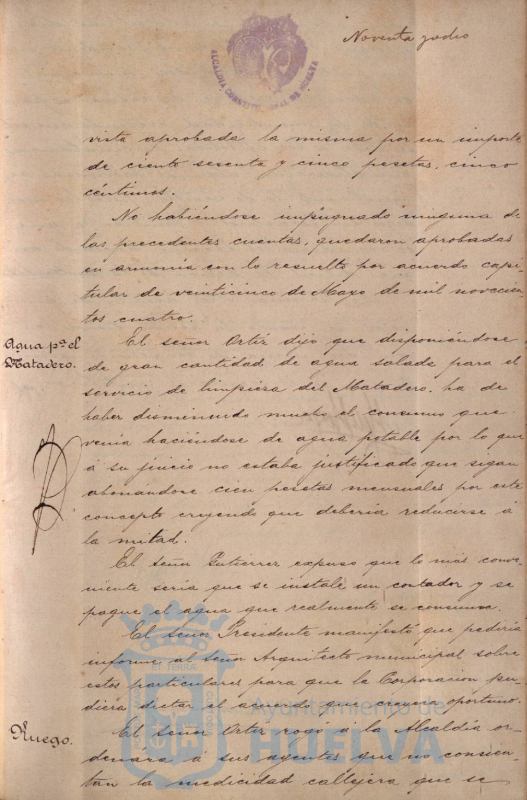 Noventa y dos
ALCALDIA CONSTITUCIONAL DE HUELVA
vista aprobada la misma por un importe
de ciento sesenta y cinco pesetas, cinco
céntimos.
No habiéndose impugnado ninguna de
las precedentes cuentas, quedaron aprobadas
en armonía con lo resuelto por acuerdo capi-
tular de veinticinco de Mayo de mil novecien-
tos cuatro.
Agua pª el
Matadero.
El señor Ortíz dijo que disponiéndose
de gran cantidad de agua salada para el
servicio de limpiesa del Matadero, ha de
haber disminuido mucho el consumo que
venía haciéndose de agua potable por lo que
á su juicio no estaba justificado que sigan
abonándose cien pesetas mensuales por este
concepto creyendo que debería reducirse á
la mitad.
El señor Gutiérrez expuso que lo más conve-
niente sería que se instale un contador y se
pague el agua que realmente se consuma.
El señor Presidente manifestó que pediría
informe al señor Arquitecto municipal sobre
estos particulares para que la Corporación pu-
diera dictar el acuerdo que creyera oportuno.
Ruego.
El señor Ortíz rogó á la Alcaldía or-
denara á sus agentes que no consien-
tan la mendicidad callejera que se
Ayuntamiento de
HUELVA